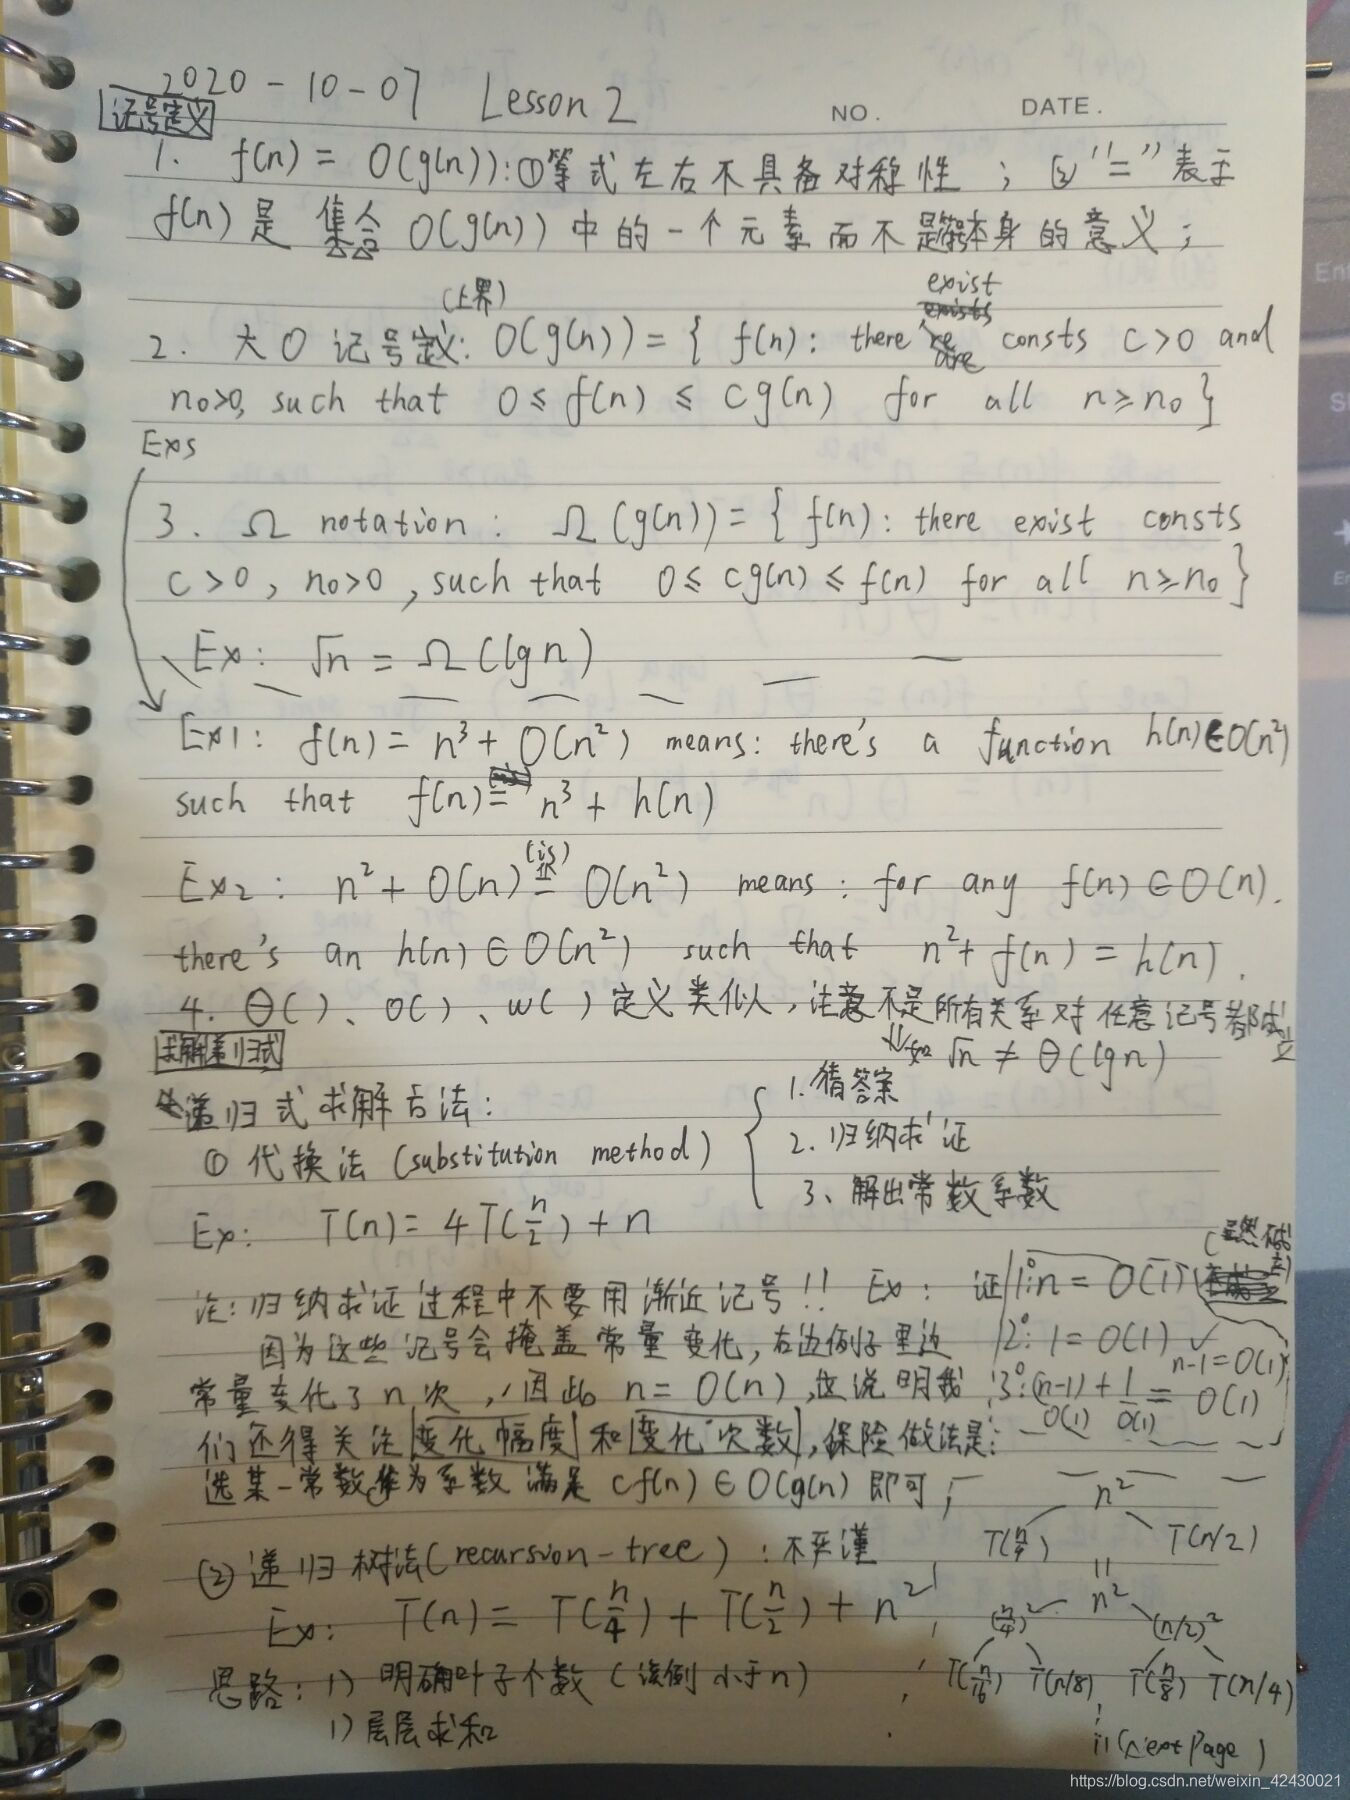 2020-10-07 Lesson 2
NO. DATE.
记号定义
1. f(n) = O(g(n)):①等式左右不具备对称性；② "=" 表示
f(n) 是 集合 O(g(n)) 中的一个元素而不是 本身的意义；
(上界) exist
2. 大O记号定义: O(g(n)) = { f(n): there consts c>0 and
n₀>0, such that 0 ≤ f(n) ≤ cg(n) for all n ≥ n₀ }
Exs
3. Ω notation: Ω(g(n)) = { f(n): there exist consts
c>0, n₀>0, such that 0 ≤ cg(n) ≤ f(n) for all n ≥ n₀ }
Ex: √n = Ω(lgn)
Ex1: f(n) = n³ + O(n²) means: there's a function h(n) ∈ O(n²)
such that f(n) = n³ + h(n)
(is)
Ex2: n² + O(n) = O(n²) means: for any f(n) ∈ O(n).
there's an h(n) ∈ O(n²) such that n² + f(n) = h(n).
4. Θ( )、o( )、ω( ) 定义类似, 注意不是所有关系对任意记号都成立
求解递归式
如 √n ≠ Θ(lgn)
递归式求解方法:
① 代换法 (substitution method)
1.猜答案
2.归纳求证
3、解出常数系数
Ex: T(n) = 4T(n/2) + n
注: 归纳求证过程中不要用渐近记号!! Ex: 证 1°:n = O(1)
因为这些记号会掩盖常量变化, 右边例子里边 2°: 1 = O(1) ✓
n-1 = O(1)
常量变化了n次, 因此 n = O(n), 这说明我 3°:(n-1) + 1 = O(1)
O(1) O(1)
们还得关注 变化幅度 和 变化次数, 保险做法是:
选某一常数作为系数满足 cf(n) ∈ O(g(n)) 即可;
n²
T(n/4) T(n/2)
② 递归树法 (recursion-tree): 不严谨
=
n²
Ex: T(n) = T(n/4) + T(n/2) + n²
(n/4)² (n/2)²
思路: 1) 明确叶子个数 (该例小于n)
T(n/16) T(n/8) T(n/8) T(n/4)
1) 层层求和
(Next Page)
https://blog.csdn.net/weixin_42430021